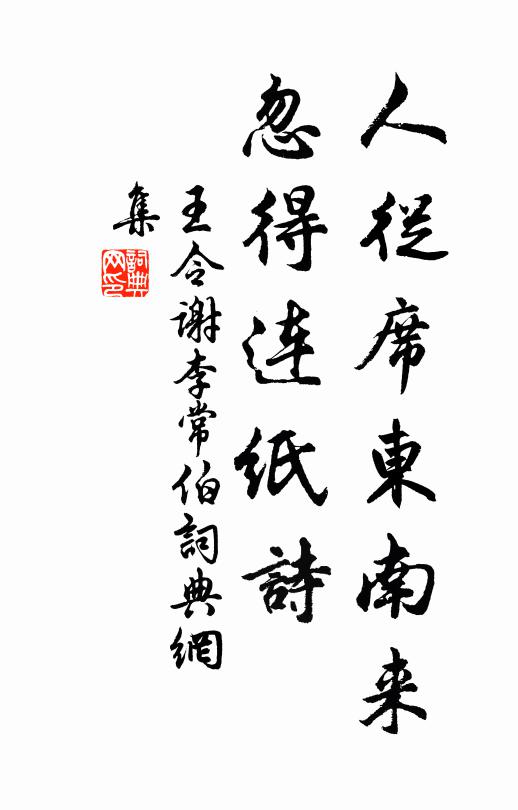 人從席東南来
忽得連紙詩
王令謝李常伯詞典網
集
詞典
网印